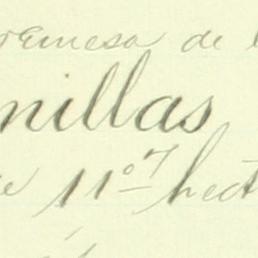 remesa de l
nillas
e 11º7 hect